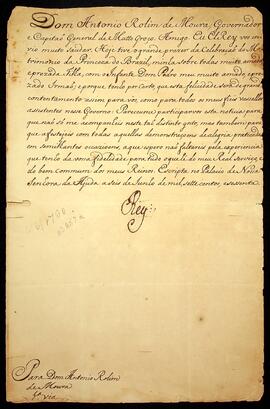 Dom Antonio Rolim de Moura, Governador
e Capitaõ General do Matto Groço. Amigo. Eu El Rey vos in
vio muito saudar. Hoje tive o grande prazer da Celebraçaõ do Ma-
trimonio da Princeza do Brazil, minha sobre todas muito amada
e prezada Filha, com o Infante Dom Pedro meu muito amado, e
prezado Irmaõ; e porque tenho por certo, que esta felicidade será de grande
contentamento assim para vos, como para todos os meus fieis vassallos
assistentes nesse Governo: Pareceume participarvos esta noticia, para
que naõ só me acompanheis neste taõ distinto gosto, mas tambem para
que afestejeis com todas aquellas demonstraçoens de alegria, praticadas
em semilhantes occazioens, aque espero naõ faltareis pela experiencia
que tenho da vossa fidelidade para tudo oque he do meu Real serviço, e
do bem commum dos meus Reinos. Escripta no Palacio de Nossa
Senhora da Ajuda, a seis de Junho de mil sette centos, esasenta.
Rey
Para Dom Antonio Rolim
de Moura
via